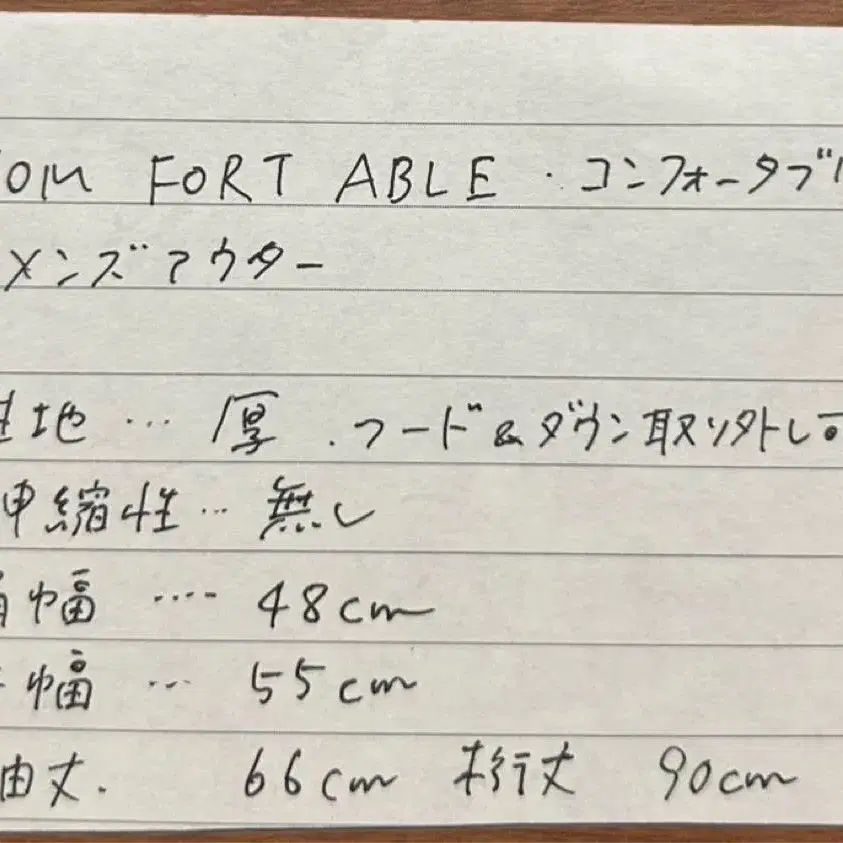 OM FORT ABLE ・コンフォータブル
メンズアウター
生地 … 厚 . フード&ダウン取り外し可
伸縮性 … 無し
肩幅 …. 48cm
身幅 … 55cm
袖丈. 66cm 裄丈 90cm